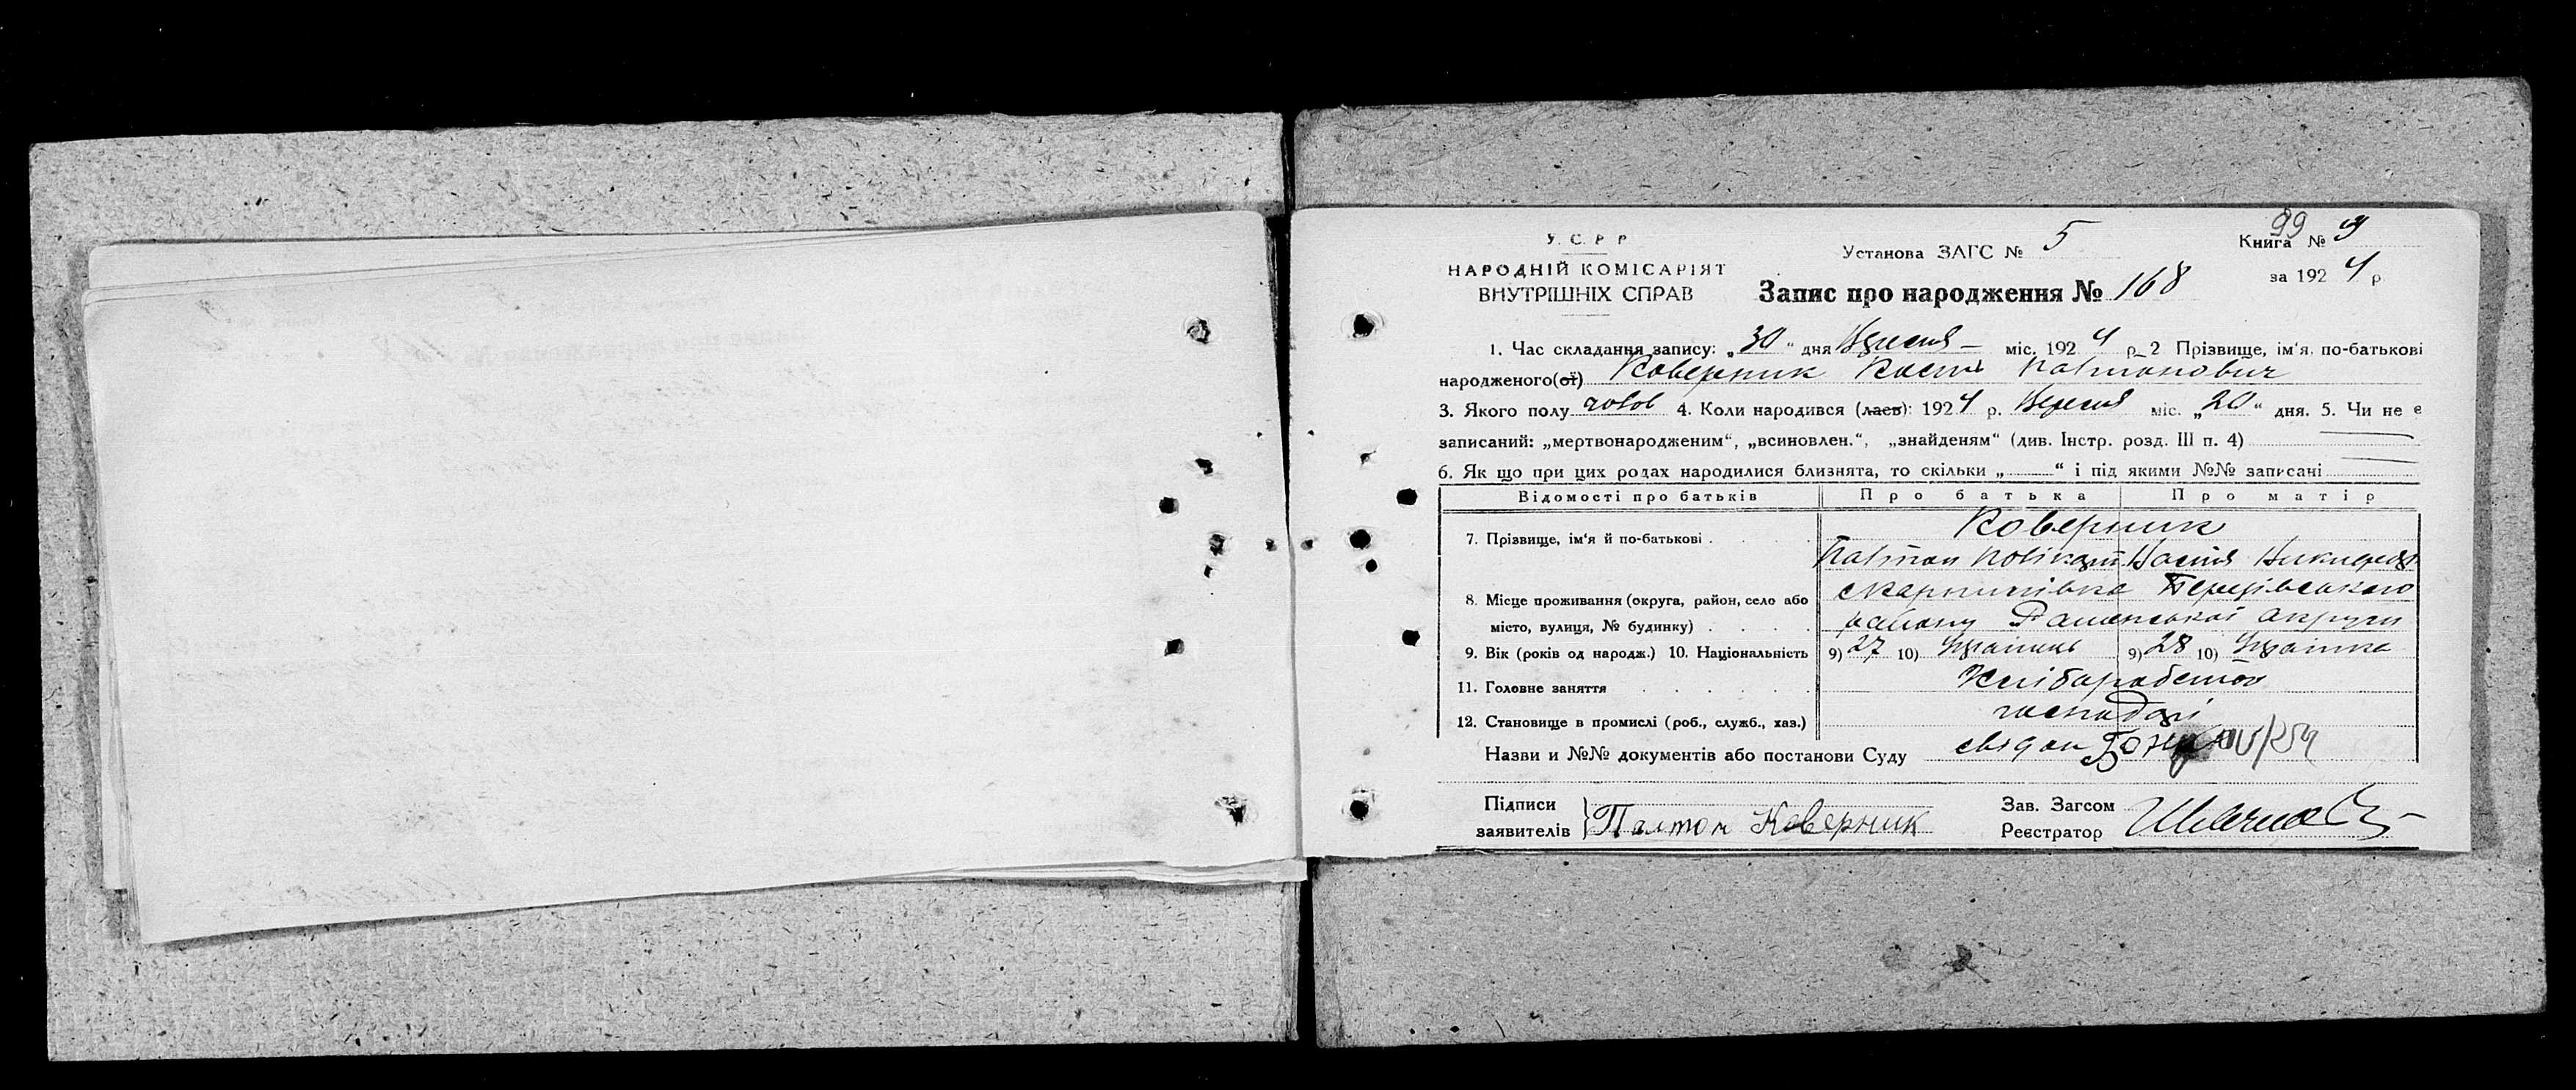 99
У. С. Р. Р.
НАРОДНІЙ КОМІСАРІЯТ
ВНУТРІШНІХ СПРАВ
Установа ЗАГС № 5
Книга № 9
за 1924 р.
Запис про народження № 168
1. Час складання запису: „30“ дня Вересня міс. 1924 р. 2 Прізвище, ім‘я, по-батькові
народженого(ої) Коверник Кость
3. Якого полу чолов 4. Коли народився (лась): 1924 р. Вересня міс. „20“ дня. 5. Чи не є
записаний: „мертвонародженим“, „всиновлен.“, „знайденям“ (див. Інстр. розд. III п. 4)
6. Як що при цих родах народилися близнята, то скільки „ “ і під якими №№ записані
Відомості про батьків Про батька Про матір
7. Прізвище, ім‘я й по-батькові Коверник
Настя
8. Місце проживання (округа, район, село або
місто, вулиця, № будинку) району Роменської округи
9. Вік (років од народж.) 10. Національність 9) 27 10) Українець 9) 28 10) Українка
11. Головне заняття Хліборобство
12. Становище в промислі (роб., служб., хаз.) господарі
Назви и №№ документів або постанови Суду
Підписи
заявителів Палтон Коверник
Зав. Загсом
Реєстратор